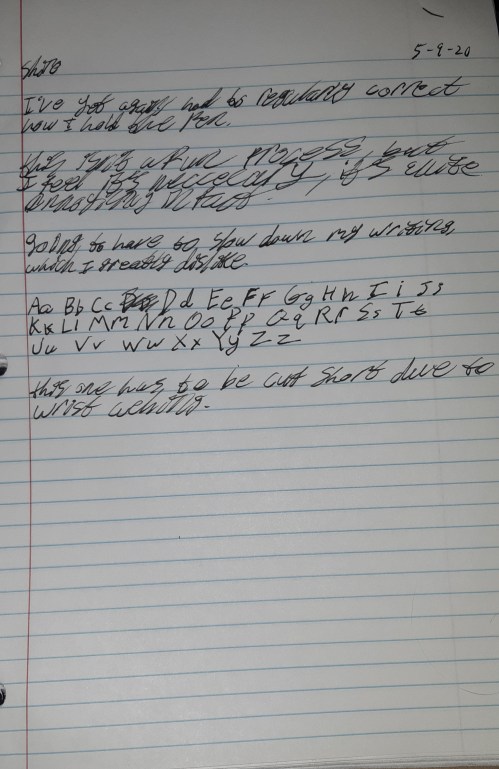 5-9-20
Shite
I've yet again had to regularly correct
how I hold the Pen.
this isn't a fun process, but
I feel it's neccecary, it's quite
annoying in fact.
going to have to slow down my writing,
which I greatly dislike.
Aa Bb Cc Dd Ee Ff Gg Hh Ii Jj
Kk Ll Mm Nn Oo Pp Qq Rr Ss Tt
Uu Vv Ww Xx Yy Zz
this one has to be cut short due to
wrist acheing.